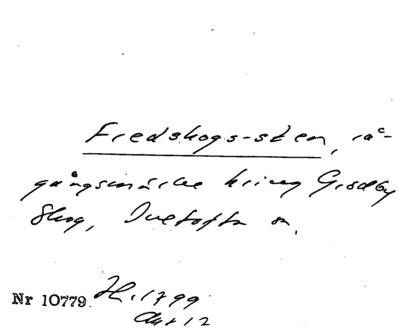 Fredskogs-sten, rå-
gångsmärke kring Grödby
Skog, Duetofta sn.
Nr 10779. H. 1799
Akt 12